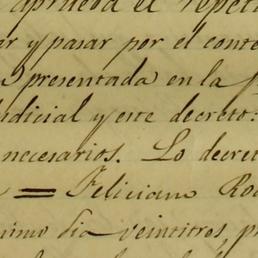 aprueba el repeti
ar y pasar por el conte
presentada en la
udicial y este decreto:
necesarios. Lo decret
= Feliciano Ro
nimo dia veintitres p